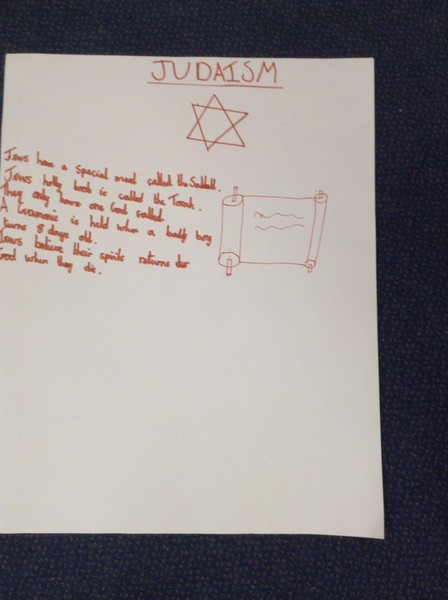 JUDAISM
Jews have a special meal called the Sabbath.
Jews holly book is called the Torah.
They only have one God called.
A Ceremonie is held when a baby boy
turns 8 days old.
Jews believe their spirits returns to
God when they die.